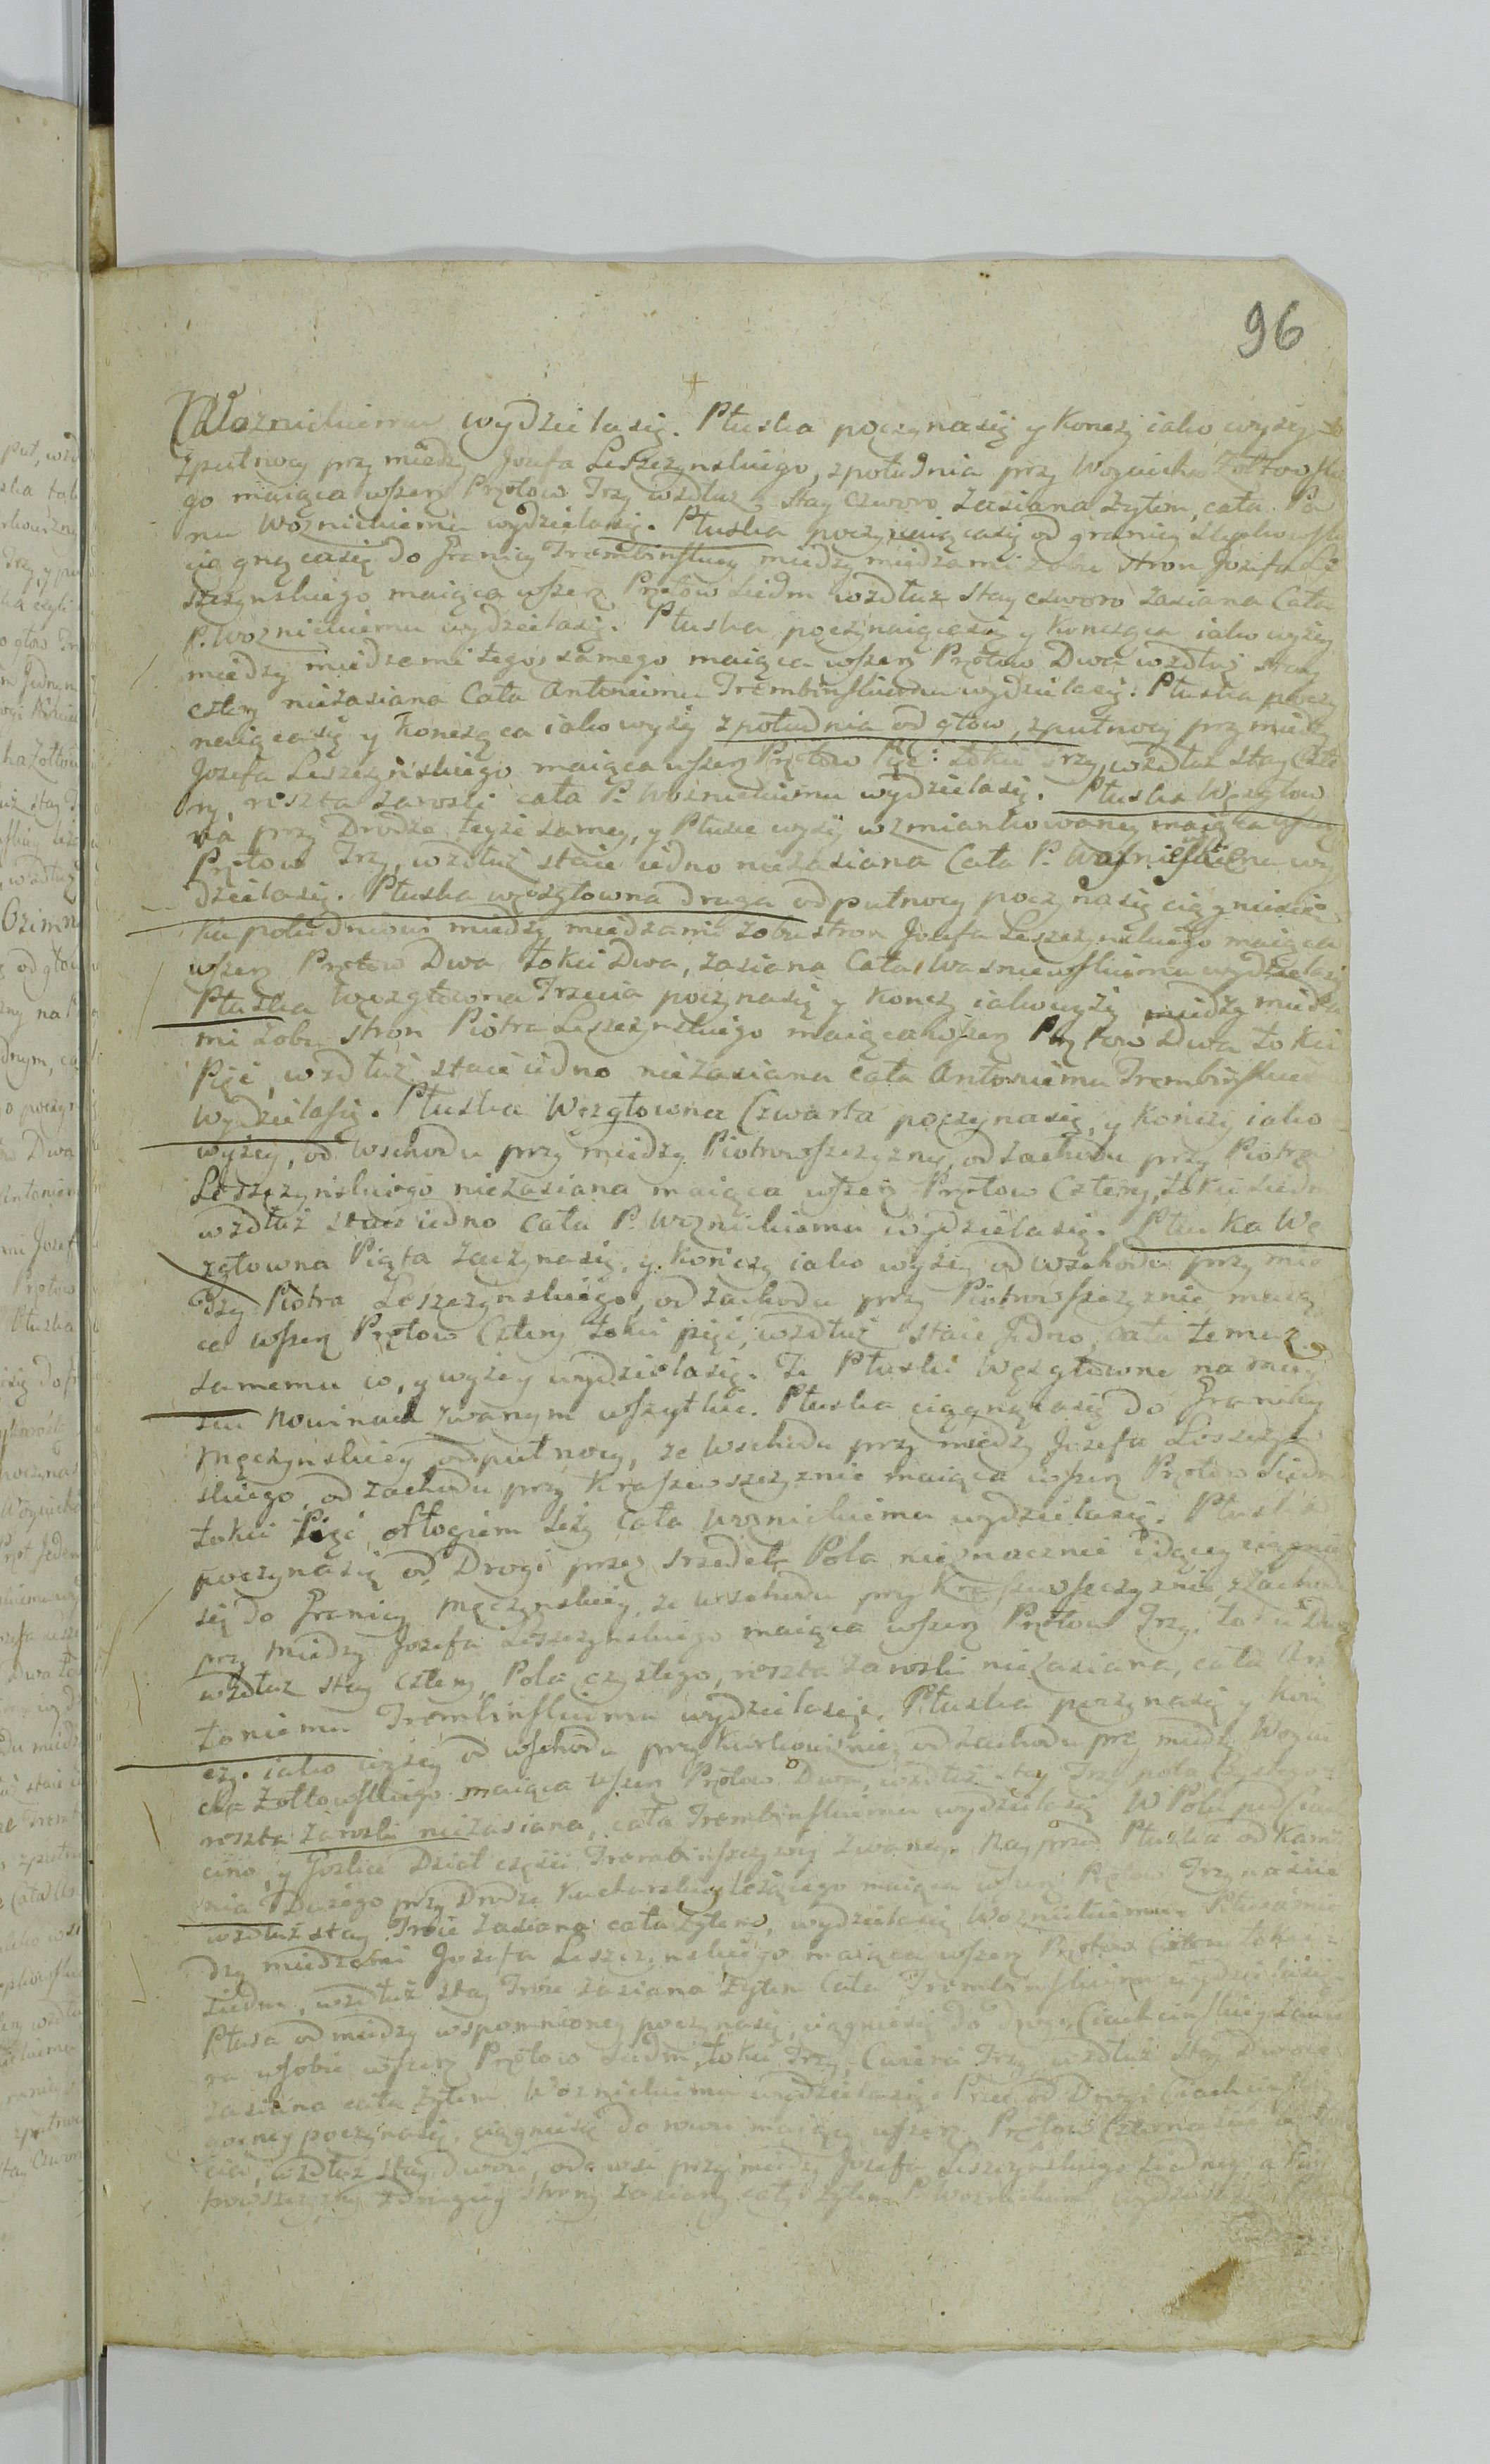 96
Woznickiemu wydziela się. Płuska poczyna się y Konczy iako wyżey
z pułnocy przy miedzy Jozefa Leszczynskiego, z południa przy Woyciecha Zołtowskie
go maiąca wszerz Prętow Trzy wzdłuż Stay czworo zasiana żytem, cała Pa
nu Woznickiemu wydziela się. Płuska poczynaiąca się od granicy
ciągnąca się do Granicy Trembinskiey między miedzami z obu stron Jozefa Le
szczynskiego maiąca wszerz Prętow siedm wzdłuż Stay czworo zasiana Cała
P. Woznickiemu wydziela się. Płuska poczynaiąca się y Kończąca iako wyżey
między miedzami tegoż samego maiąca wszerz Prętow Dwa wzdłuż stay
cztery niezasiana Cała Antoniemu Trembinskiemu wydziela się: Płuska poczy
naiąca się y Konczącą iako wyżey z południa od głow, z pułnocy przy miedzy
Jozefa Leszczynskiego maiąca wszerz Prętow Pięć: łokci trzy, wzdłuż Stay Czte
ry, reszta zarosli cała P. Woznickiemu wydziela się. Płuska Węzgłow
na przy Drodze teyże samey, y Płusce wyżey wzmiankowaney maiąca wszerz
Prętow Trzy, wzdłuż staie iedno niezasiana Cała P. wy
dziela się. Płuska węzgłowna druga od pułnocy poczyna się ciągnie się
ku południowi między miedzami z obu stron Jozefa Leszczynskiego maiąca
wszerz Prętow Dwa Łokci Dwa, zasiana Cała Wasniewskiemu wydziela się
Płuska Węzgłowna Trzecia poczyna się y Konczy iako wyży między miedza
mi z obu stron Piotra Leszczynskiego maiąca wszerz Prętow Dwa Łokci
Pięć, wzdłuż staie iedno niezasiana cała Antoniemu Trembinskiemu
wydziela się. Płuska Węzgłowna Czwarta poczyna się, y Kończy iako
wyżey, od Wschodu przy miedzy Piotrowszczyzny, od zachodu przy Piotra
Leszczynskiego niezasiana maiąca wszerz Prętow Cztery, łokci siedm
wzdłuż staie iedno cała P. Woznickiemu wydziela się. Płuska Wę
zgłowna Piąta zaczyna się, y Kończy iako wyżey od wschodu przy mie
dzy Piotra Leszczynskiego, od zachodu przy Piotrowszczyznie, maią
ca wszerz Prętow Cztery łokci pięć, wzdłuż staie Jedno, cała temuż
samemu co, y wyżey wydziela się. Te Płuski Węzgłowne na miey
scu Nowinach zwanym wszytkie. Płuska ciągnąca się do Granicy
Męczynskiey od pułnocy, ze Wschodu przy miedzy Jozefa Leszczyn
skiego, od zachodu przy Kraszewszczyznie maiąca wszerz Prętow Siedm
łokci Pięć, odłogiem leży cała Woznickiemu wydziela się. Płuska
poczyna się od Drogi przez srzedek Pola nieznacznie idącey ciągnie
się do Granicy Męczynskiey, ze wschodu przy Kraszewszczyznie, z Zachodu
przy miedzy Jozefa Leszczynskiego maiąca wszerz Prętow Trzy, łokci Dwa
wzdłuż stay cztery Pola czystego, reszta zarosli niezasiana, cała An
toniemu Trembinskiemu wydziela się. Płuska poczyna się y Koń
czy iako wyżey od wschodu przy Kurkowiznie, od Zachodu prz miedzy Woycie
cha Zołtowskiego maiąca wszerz Prętow Dwa, wzdłuż stay Trzy pola czystego
reszta zarosli niezasiana, cała Trembinskiemu wydziela się W Polu pod
cino, y Gozlice Dział części Trembinszczyzny zwaney. Nayprzod Płuska od Kamie
nia Dużego przy Drodze Kucharskiey leżącego maiąca wszerz Prętow Trzynascie
wzdłuż stay Troie zasiana cała żytem, wydziela się Woznickiemu. Płusa mie
dzy miedzami Jozefa Leszczynskiego maiąca wszerz Prętow Cztery łokci
siedm, wzdłuż stay Troie zasiana żytem Cała Trembinskiemu wydziela się
Płusa od miedzy wspomnioney poczyna się, ciągnie się do drogi Ciachcinskiey zawie
ra w sobie wszerz Prętow siedm, łokci Trzy, Cwierci Trzy wzdłuż stay Dwoie
zasiana cała żytem Woznickiemu wydziela się. Płusa od Drogi Ciachcinskiey
poczyna się, ciągnie się do rowu maiąca wszerz Prętow Czternascie
wzdłuż stay dwoie, oda wsi przy miedzy Jozefa Leszczynskiego iedney, a
z drugiey strony zasiany cały żytem P. Woznickiemu wydziela się